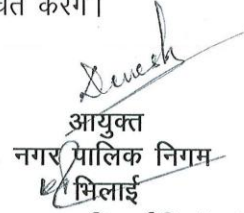 करेंगे।
Dinesh
आयुक्त
नगर पालिक निगम
भिलाई